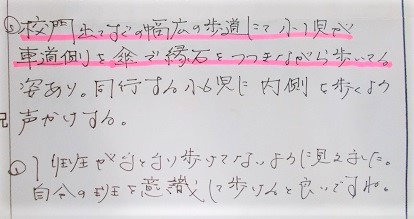 校門出てすぐの幅広の歩道にて小1児が
車道側を傘で縁石をつつきながら歩いてる
姿あり。同行する小6児に内側を歩くよう
声かけする。
班がまとまり歩けてないように見えました。
自分の班を意識して歩けると良いですね。